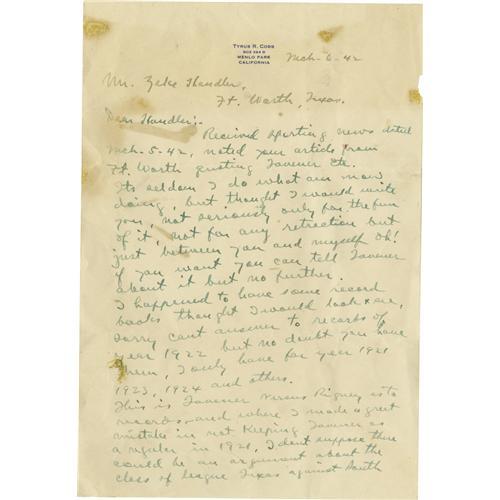 TYRUS R. COBB
BOX 284 D
MENLO PARK
CALIFORNIA
Mch-6-42
Mr. Zeke Handler,
Ft. Worth, Texas.
Dear Handler;-
Received Sporting news dated
Mch-5-42, noted your article from
Ft. Worth quoting Tavener etc.
Its seldom I do what am now
doing, but thought I would write
you, not seriously only for the fun
of it, not for any retraction but
just between you and myself Oh!
if you want you can tell Tavener
about it but no further.
I happened to have some record
books thought I would look & see,
sorry cant answer to records of
year 1922 but no doubt you have
them, I only have for year 1921
1923, 1924 and others.
This is Tavener versus Rigney as to
records, and where I made a great
mistake in not keeping Tavener as
a regular in 1921, I dont suppose there
could be an argument about the
class of league Texas against South